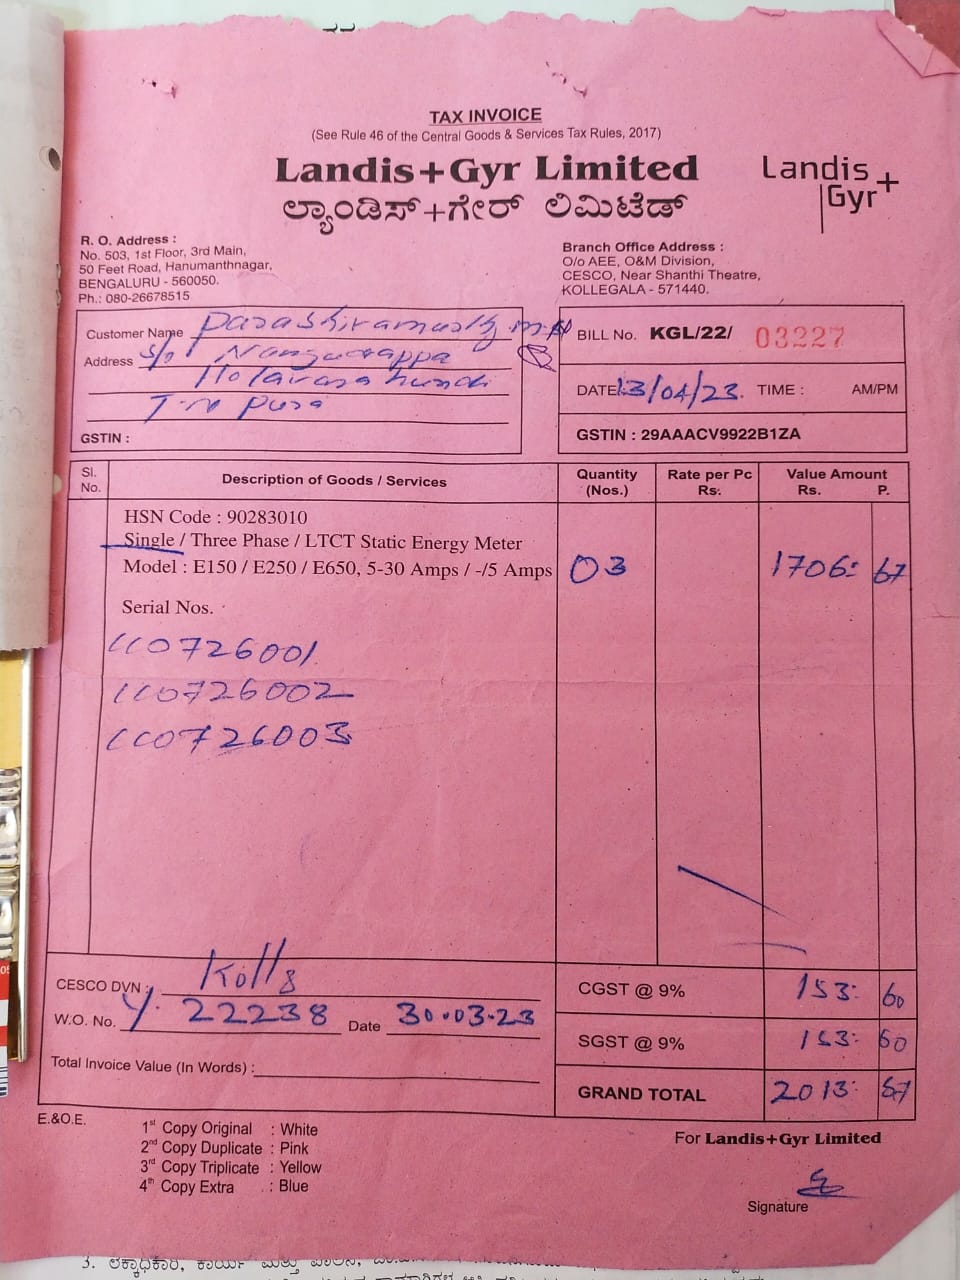 TAX INVOICE
(See Rule 46 of the Central Goods & Services Tax Rules, 2017)
Landis+Gyr Limited
ಲ್ಯಾಂಡಿಸ್+ಗೇರ್ ಲಿಮಿಟೆಡ್
Landis
Gyr+
R. O. Address :
No. 503, 1st Floor, 3rd Main,
50 Feet Road, Hanumanthnagar,
BENGALURU - 560050.
Ph.: 080-26678515
Branch Office Address :
O/o AEE, O&M Division,
CESCO, Near Shanthi Theatre,
KOLLEGALA - 571440.
Customer Name
Address S/o
T-N pura
GSTIN :
BILL No. KGL/22/ 03227
DATE 13/04/23. TIME : AM/PM
GSTIN : 29AAACV9922B1ZA
Sl. No. Description of Goods / Services Quantity (Nos.) Rate per Pc Rs. Value Amount Rs. P.
HSN Code : 90283010
Single / Three Phase / LTCT Static Energy Meter
Model : E150 / E250 / E650, 5-30 Amps / -/5 Amps 03 1706: 67
Serial Nos.
110726001
110726002
110726003
CESCO DVN :
W.O. No. 22238 Date 30.03.23
Total Invoice Value (In Words) :
CGST @ 9% 153: 60
SGST @ 9% 153: 60
GRAND TOTAL 2013:
E.&O.E.
1st Copy Original : White
2nd Copy Duplicate : Pink
3rd Copy Triplicate : Yellow
4th Copy Extra : Blue
For Landis+Gyr Limited
Signature